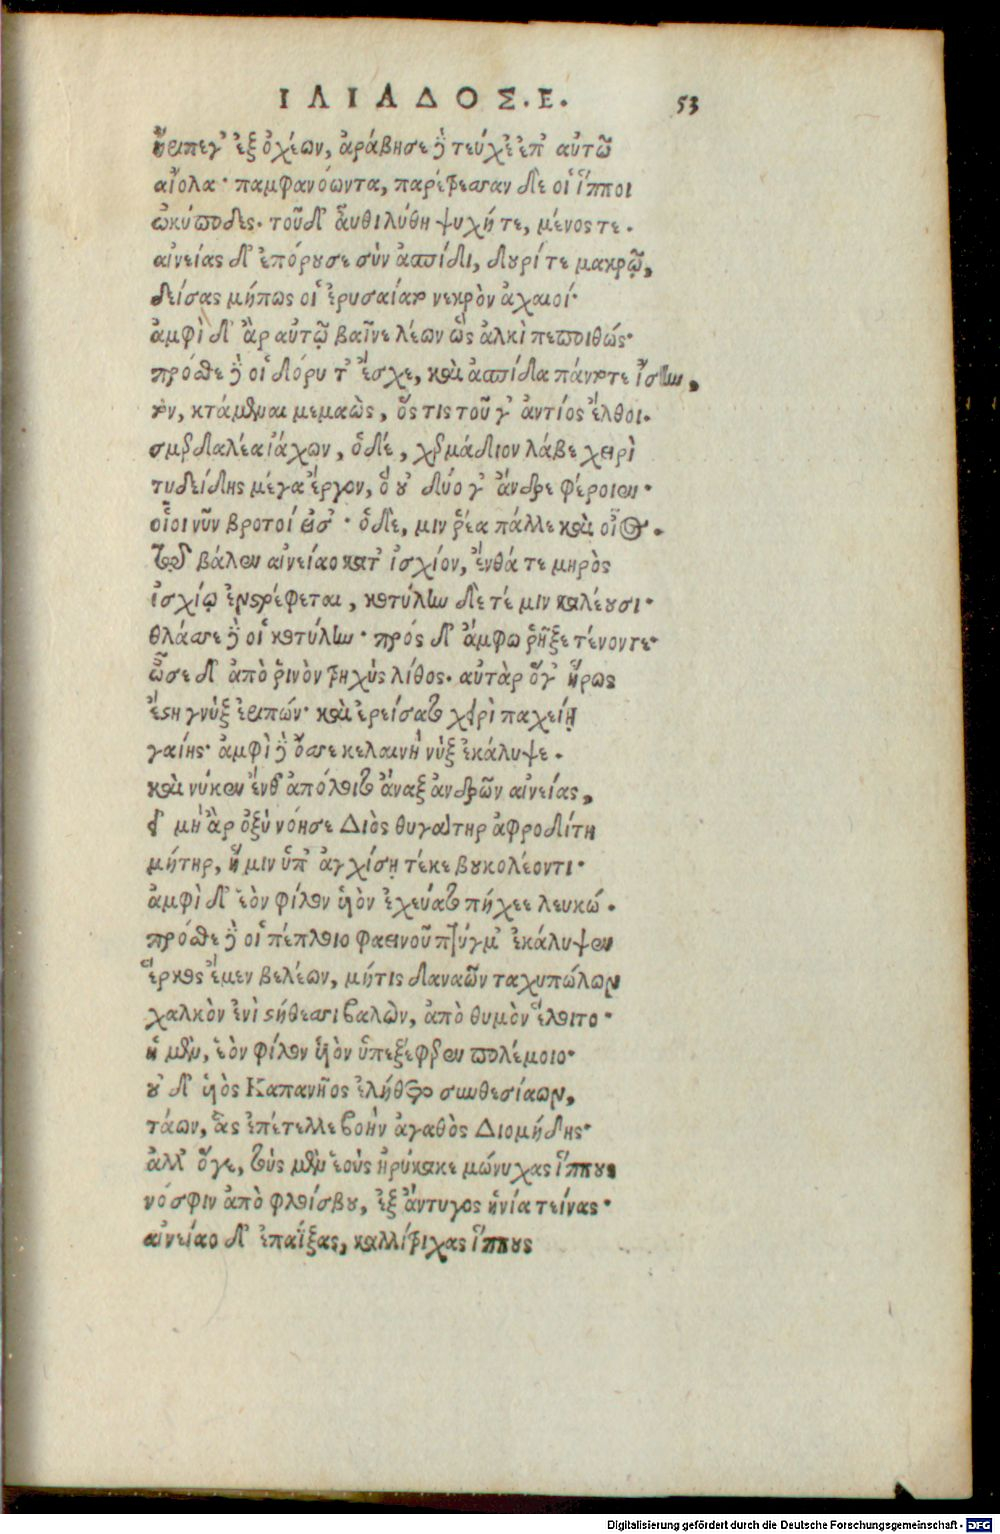 ΙΛΙΑΔΟΣ. Ε. 53
ἤριπεγ' ἐξ ὀχέων, ἀράβησε δὲ τεύχε' ἐπ' αὐτῶ
αἰόλα· παμφανόωντα, παρέτρεσσαν δέ οἱ ἵπποι
ὠκύποδες. τοῦ δ' αὖθι λύθη ψυχή τε, μένος τε.
αἰνείας δ' ἐπόρουσε σὺν ἀσπίδι, δουρί τε μακρῷ,
δείσας μήπως οἱ ἐρυσαίατο νεκρὸν ἀχαιοί·
ἀμφὶ δ' ἂρ αὐτῷ βαῖνε λέων ὣς ἀλκὶ πεποιθώς·
πρόσθε δέ οἱ δόρυ τ' ἔσχε, καὶ ἀσπίδα πάντοτε ἴσην,
τὸν, κτάμεναι μεμαὼς, ὅς τις τοῦ γ' ἀντίος ἔλθοι.
σμερδαλέα ἰάχων, ὁ δέ, χερμάδιον λάβε χειρὶ
τυδείδης μέγα ἔργον, ὃ οὐ δύο γ' ἄνδρε φέροιεν·
οἷοι νῦν βροτοί εἰσ'· ὁ δέ, μιν ῥέα πάλλε καὶ οἶος.
τῷ βάλεν αἰνείαο κατ' ἰσχίον, ἔνθά τε μηρὸς
ἰσχίῳ ἐνστρέφεται, κοτύλην δέ τέ μιν καλέουσι·
θλάσσε δέ οἱ κοτύλην· πρός δ' ἄμφω ῥῆξε τένοντε·
ὦσε δ' ἀπὸ ῥινὸν τρηχὺς λίθος. αὐτὰρ ὅγ' ἥρως
ἔστη γνὺξ ἐριπών· καὶ ἐρείσατο χειρὶ παχείῃ
γαίης· ἀμφὶ δὲ ὄσσε κελαινὴ νὺξ ἐκάλυψε.
καὶ νύκεν ἔνθ' ἀπόλοιτο ἄναξ ἀνδρῶν αἰνείας,
εἰ μὴ ἂρ ὀξὺ νόησε Διὸς θυγάτηρ ἀφροδίτη
μήτηρ, ἥ μιν ὑπ' ἀγχίσῃ τέκε βουκολέοντι·
ἀμφὶ δ' ἑὸν φίλον υἱὸν ἐχεύατο πήχεε λευκώ.
πρόσθε δέ οἱ πέπλοιο φαεινοῦ πτύγμ' ἐκάλυψεν
ἕρκος ἔμεν βελέων, μήτις δαναῶν ταχυπώλων
χαλκὸν ἐνὶ στήθεσσι βαλὼν, ἀπὸ θυμὸν ἕλοιτο·
ἡ μὲν, ἑὸν φίλον υἱὸν ὑπεξέφερεν πολέμοιο·
οὐ δ' υἱὸς Καπανῆος ἐλήθετο συνθεσίαων,
τάων, ἃς ἐπέτελλε βοὴν ἀγαθὸς Διομήδης·
ἀλλ' ὅγε, τοὺς μὲν ἑοὺς ἠρύκακε μώνυχας ἵππους
νόσφιν ἀπὸ φλοίσβου, ἐξ ἄντυγος ἡνία τείνας·
αἰνείαο δ' ἐπαΐξας, καλλίτριχας ἵππους
Digitalisierung gefördert durch die Deutsche Forschungsgemeinschaft - DFG